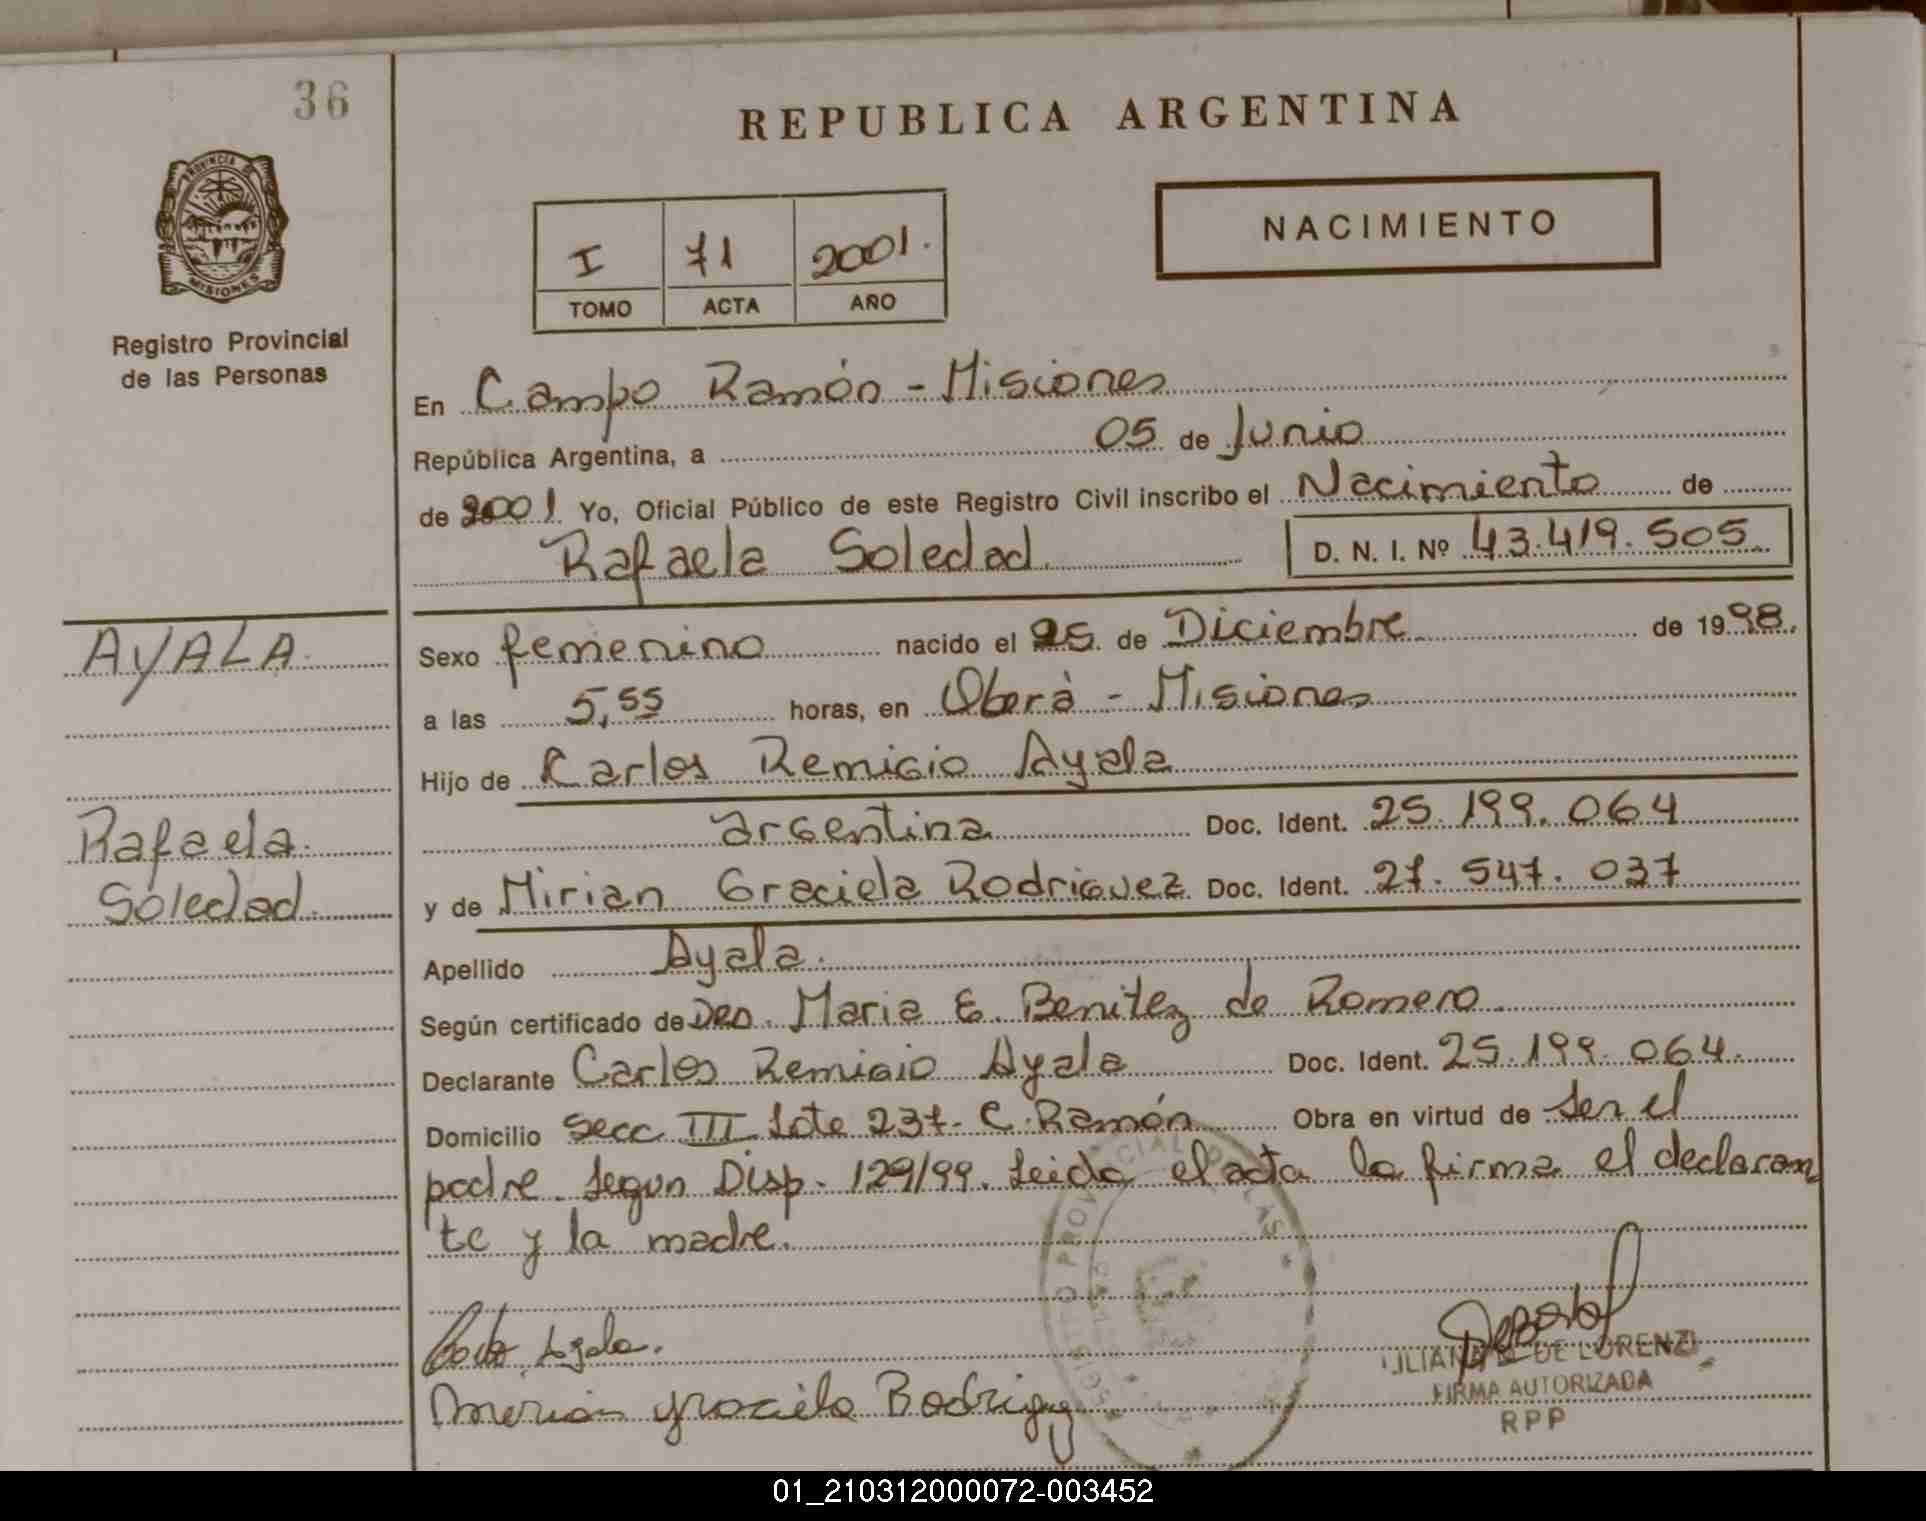 36
REPUBLICA ARGENTINA
PROVINCIA DE
MISIONES
NACIMIENTO
I 71 2001.
TOMO ACTA AÑO
Registro Provincial
de las Personas
En Campo Ramón - Misiones
República Argentina, a 05 de Junio
de 2001 Yo, Oficial Público de este Registro Civil inscribo el Nacimiento de
Rafaela Soledad. D. N. I. Nº 43.419.505
AYALA.
Sexo femenino nacido el 25 de Diciembre de 1998.
a las 5,55 horas, en Oberá - Misiones
Hijo de Carlos Remigio Ayala
Rafaela
Soledad.
argentina Doc. Ident. 25.199.064
y de Mirian Graciela Rodriguez Doc. Ident. 27.547.037
Apellido Ayala.
Según certificado de Maria E. Benitez de Romero
Declarante Carlos Remigio Ayala Doc. Ident. 25.199.064.
Domicilio Secc III Lote 237- C. Ramón Obra en virtud de ser el
padre. Segun Disp. 129/99. Leida el acta la firma el declaran
te y la madre.
Ayala.
graciela Rodrigu
DE LORENZI
FIRMA AUTORIZADA
RPP
01_210312000072-003452